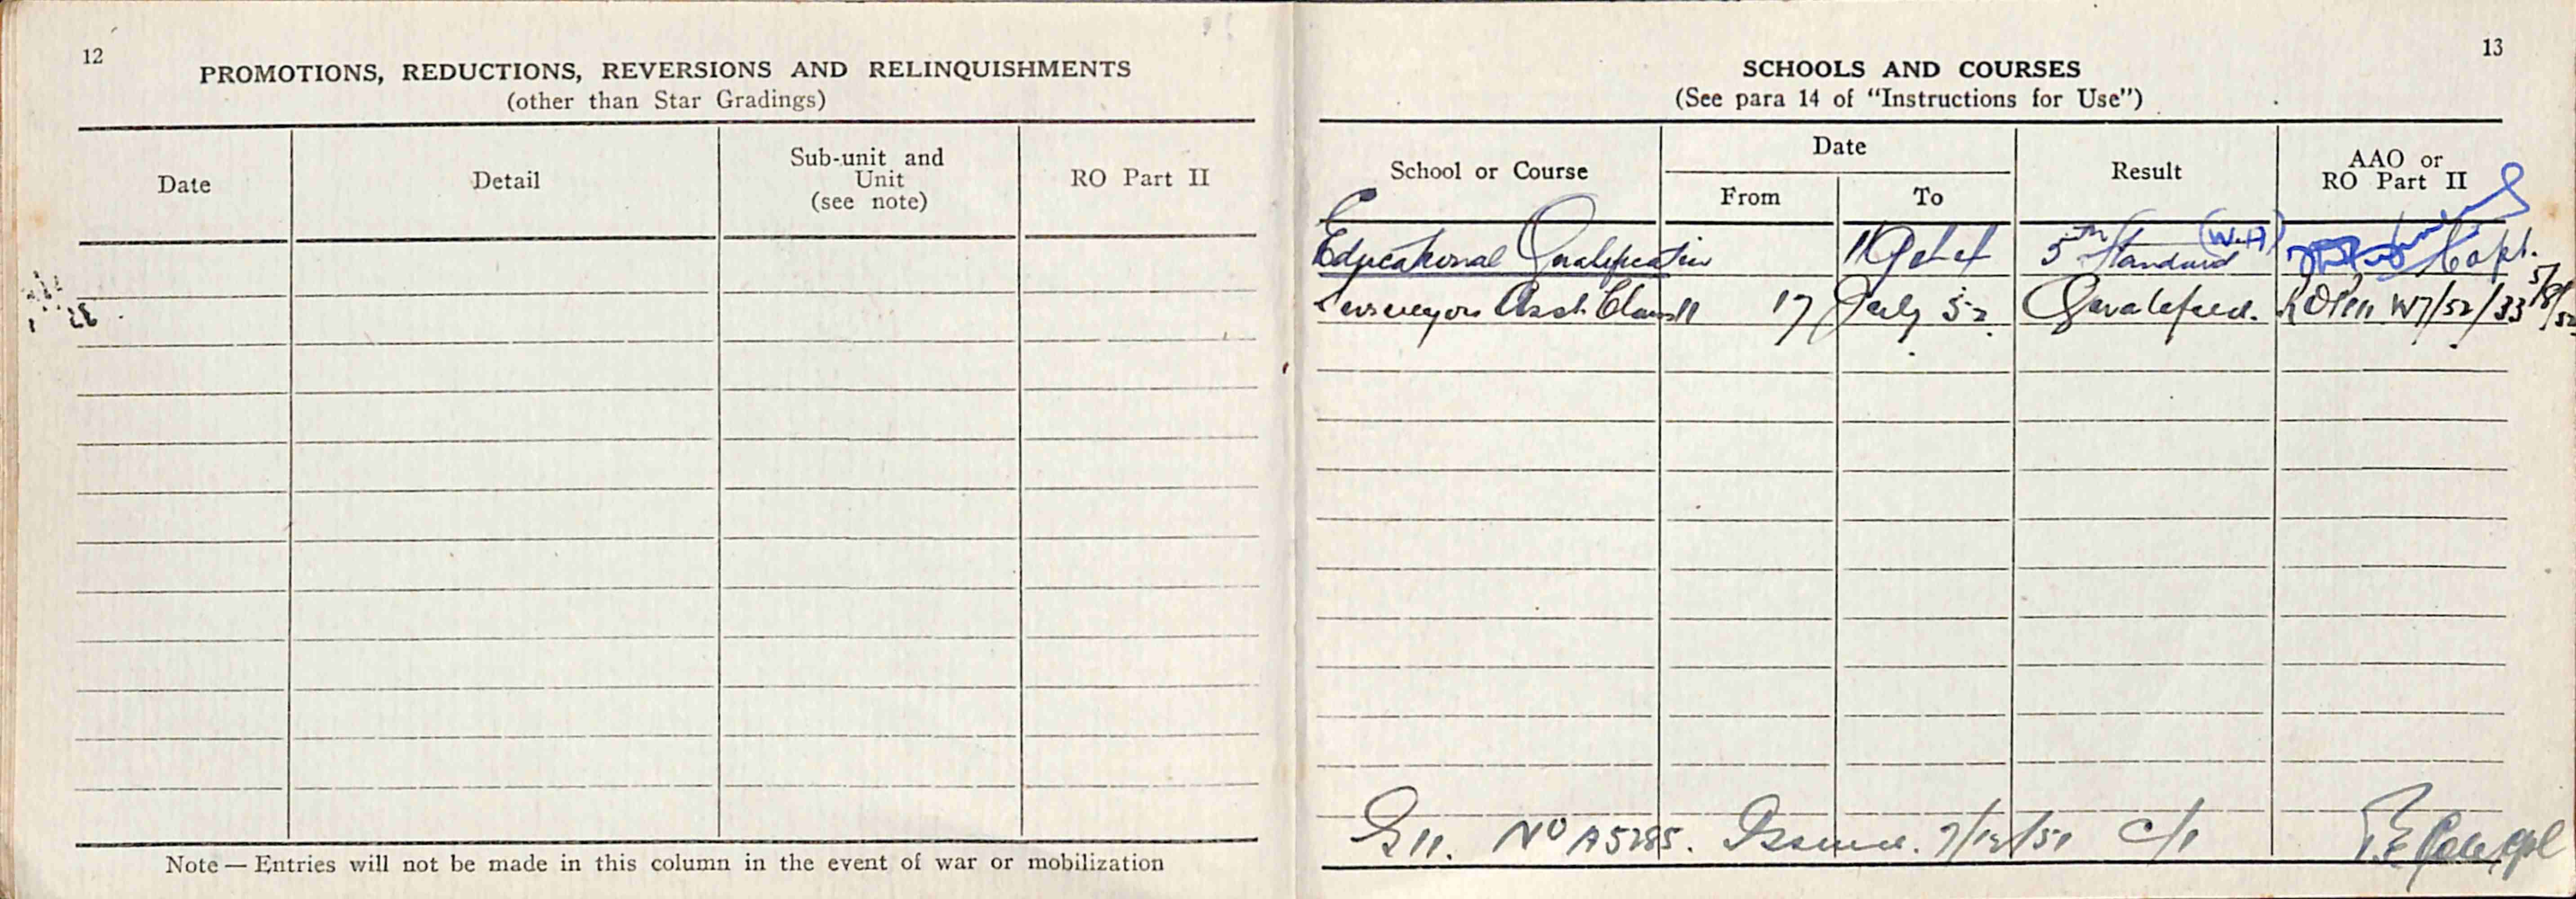 12
PROMOTIONS, REDUCTIONS, REVERSIONS AND RELINQUISHMENTS
(other than Star Gradings)
Date
Detail
Sub-unit and
Unit
(see note)
RO Part II
Note — Entries will not be made in this column in the event of war or mobilization
13
SCHOOLS AND COURSES
(See para 14 of "Instructions for Use")
School or Course
Date
From
To
Result
AAO or
RO Part II
Educational Qualification 5th Standard (W.A) Capt.
Surveyors Asst. Class II 17 July 52 Qualified. W7/52/33 5/8/52
No A5285. Issued. 7/12/51 C/1